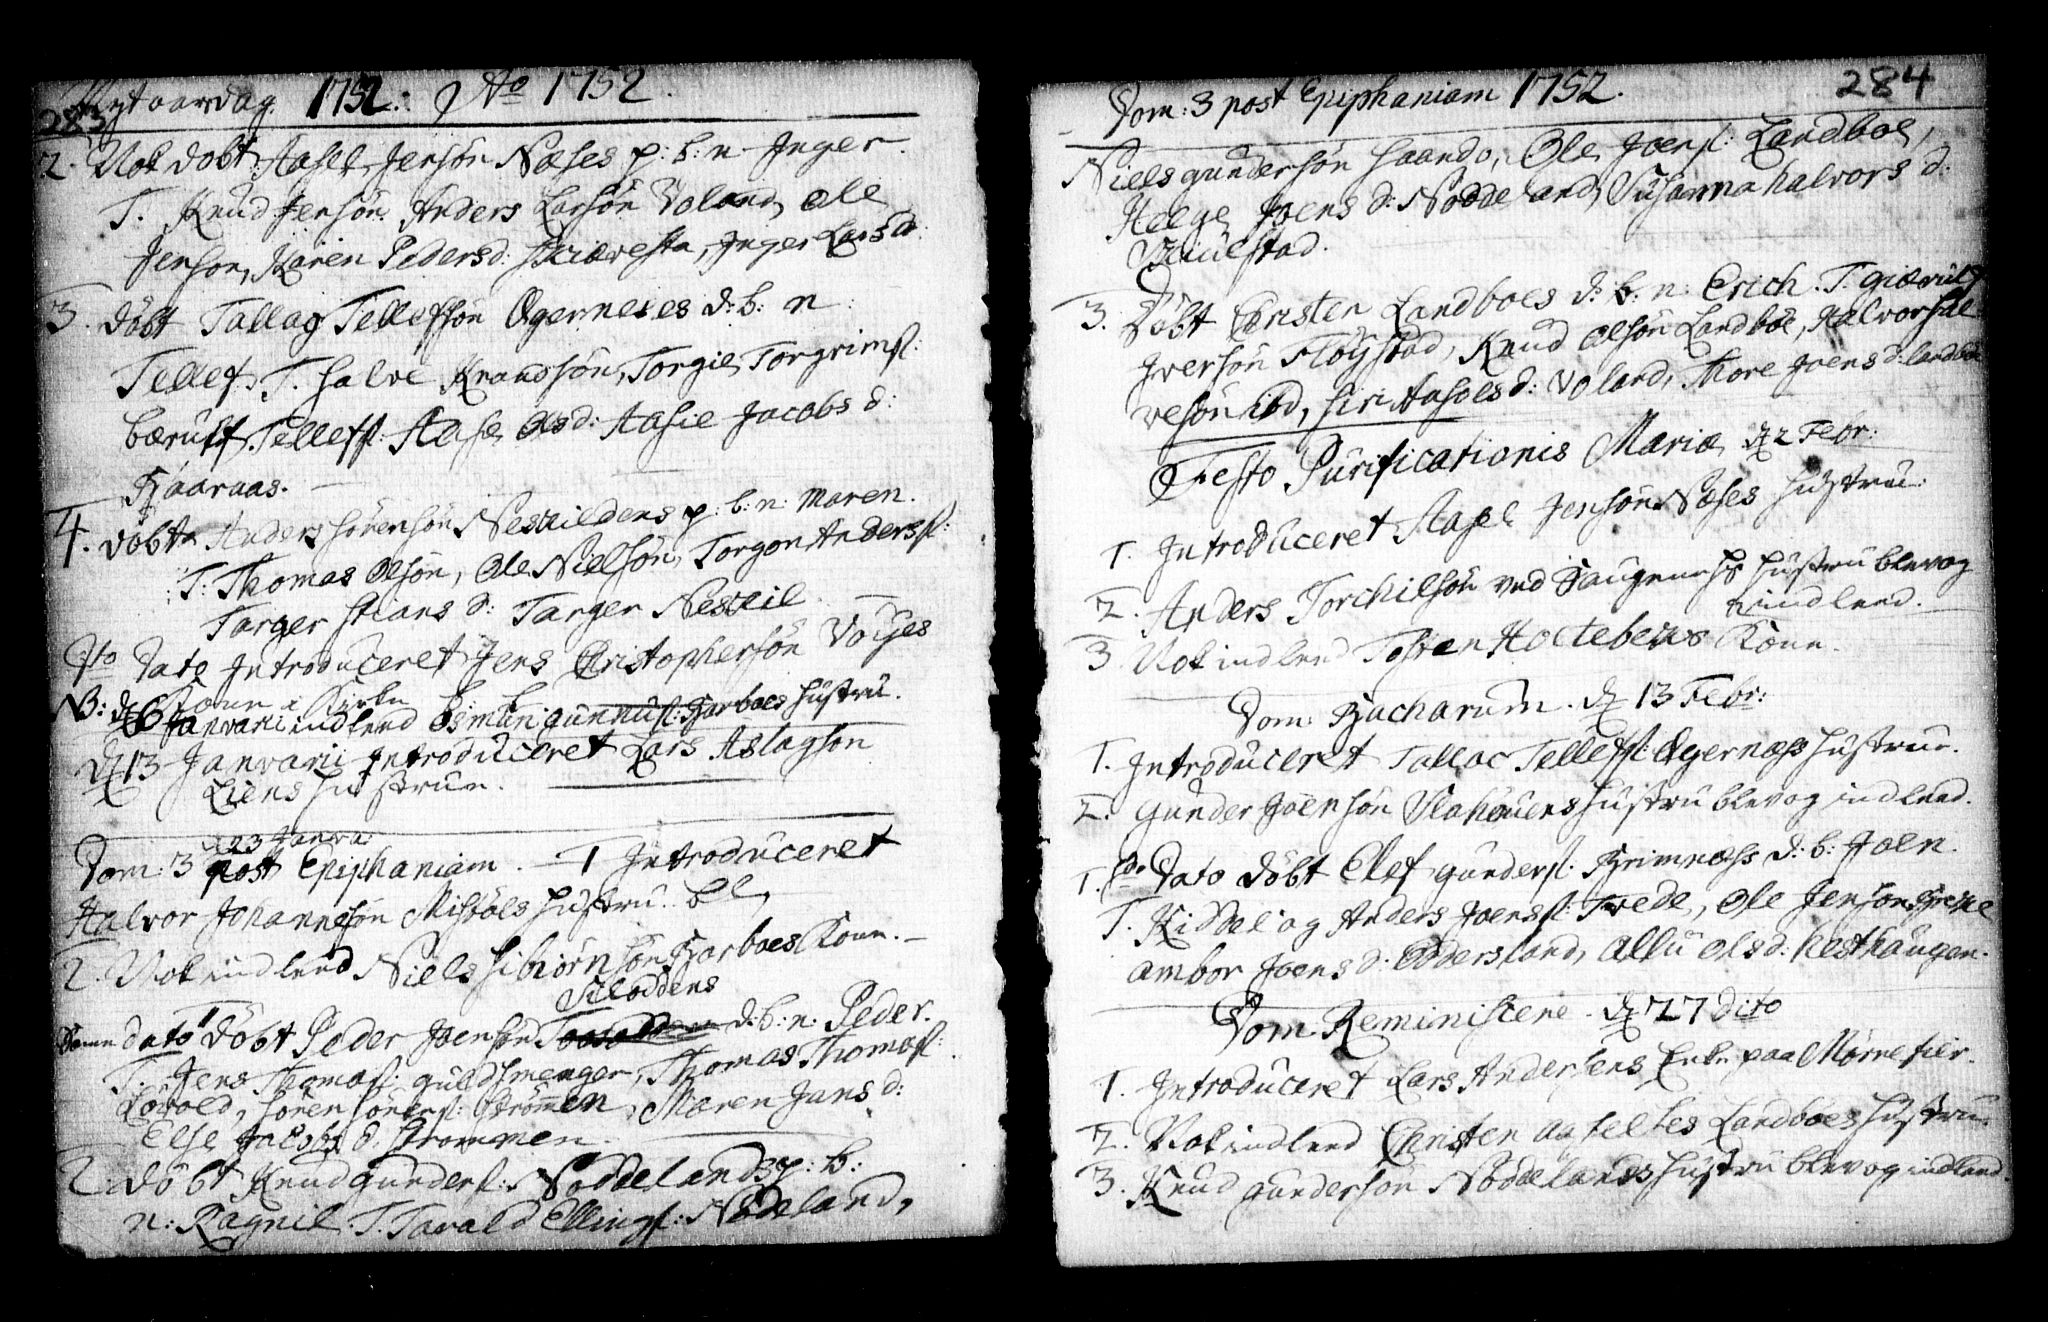 Nytaarsdag. 1752. Ao 1752.
283
2. Nok döbt Aasel Jensön Næses p: b: n. Inger.
T. Knud Jensön, Anders Larsön Voland, Ole
Jenson, Karen Pedersd: Skiævesta, Inger Larsd:
3. döbt Tallag Tellefsön Ogerneses d: b: n:
Tellef. T. Halve Knandsön, Torgie Torgrimss:
bærulf Tellefss: Aase Olsd: Aasie Jacobs d:
Kaaraas.
4. döbt Anders Sörensön Neskildens p: b: n: Maren.
T: Thomas Olsön, Ole Nielsön, Torgon Anderss:
Targer Stians d: Targer Neskil.
Dto Dato Introduceret Jens Christophersön Voies
Kone i Kirken
NB: d 6 Janvarii indleed Osmun Gunnuss: Garboes hustru.
d 13 Janvarii Introduceret Lars Aslagsön
Liens Hustrue.
d 23 Janva:
Dom: 3 post Epiphaniam. 1 Introduceret
Halvor Johannesön Misböls hustru. bl
2. Nok indleed Niels Sibiörnsön Garboes Kone.
Kiloddens
Samme dato 1 döbt Peder Joensön d: b: n: Peder.
T. Jens Thomass: guldsmenger, Thomas Thomass:
Lövold, Sören Sörenss: Strömmen, Maren Jans d:
Else Jacobs d. Strommen.
2. döbt Knud Gunderss: Noddelands p: b:
n: Ragnil. T. Tarald Ellingss: Nodeland,
Dom: 3 post Epiphaniam 1752. 284
Niels Gundersön Haando, Ole Joenss: Landboe,
Helge Joens d: Noddeland, Susanna Halvors d:
Viulstad.
3. Döbt Christen Landboes d: b: n: Erich. T. giærulf
Iversön Flöystad, Knud Olsön Landboe, Halvor Hal
vesön ibd, Siri Aasols d: Voland, Thore Joens d: landboe
Festo Purificationis Mariæ d 2 Febr:
1. Introduceret Aasel Jensön Næses hustru:
2. Anders Torchilsön ved Haugenes hustru blev og
indleed.
3. Nok indleed Tosten Holtebers Kone.
Dom: Zacharum. d 13 Febr:
1. Introduceret Tallac Tellefss: Ogernæss hustrue.
2. Gunder Joensön Vlahöuens hustru blev og indleed.
1. Do Dato döbt Elef Gunderss: Grimnæss d: b: Joen.
T. Kiddel og Anders Joenss: Tvede, Ole Jensön Grette
ambor Joens d: Eddersland, Allu Olsd: Hesthaugen.
Dom. Reminiscere. d 27 Dito
1. Introduceret Lars Andersens Enke paa Mörnefier.
2. Nok indleed Christen Aasettes Landboes hustru.
3. Knud Gundersön Noddelands hustru blev og indleed.